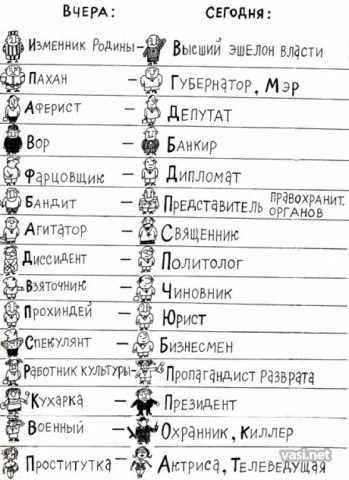 ВЧЕРА: СЕГОДНЯ:
ИЗМЕННИК РОДИНЫ – ВЫСШИЙ ЭШЕЛОН ВЛАСТИ
ПАХАН – ГУБЕРНАТОР, МЭР
АФЕРИСТ – ДЕПУТАТ
ВОР – БАНКИР
ФАРЦОВЩИК – ДИПЛОМАТ
БАНДИТ – ПРЕДСТАВИТЕЛЬ ПРАВОХРАНИТ. ОРГАНОВ
АГИТАТОР – СВЯЩЕННИК
ДИССИДЕНТ – ПОЛИТОЛОГ
ВЗЯТОЧНИК – ЧИНОВНИК
ПРОХИНДЕЙ – ЮРИСТ
СПЕКУЛЯНТ – БИЗНЕСМЕН
РАБОТНИК КУЛЬТУРЫ – ПРОПАГАНДИСТ РАЗВРАТА
КУХАРКА – ПРЕЗИДЕНТ
ВОЕННЫЙ – ОХРАННИК, КИЛЛЕР
ПРОСТИТУТКА – АКТРИСА, ТЕЛЕВЕДУЩАЯ
vasi.net